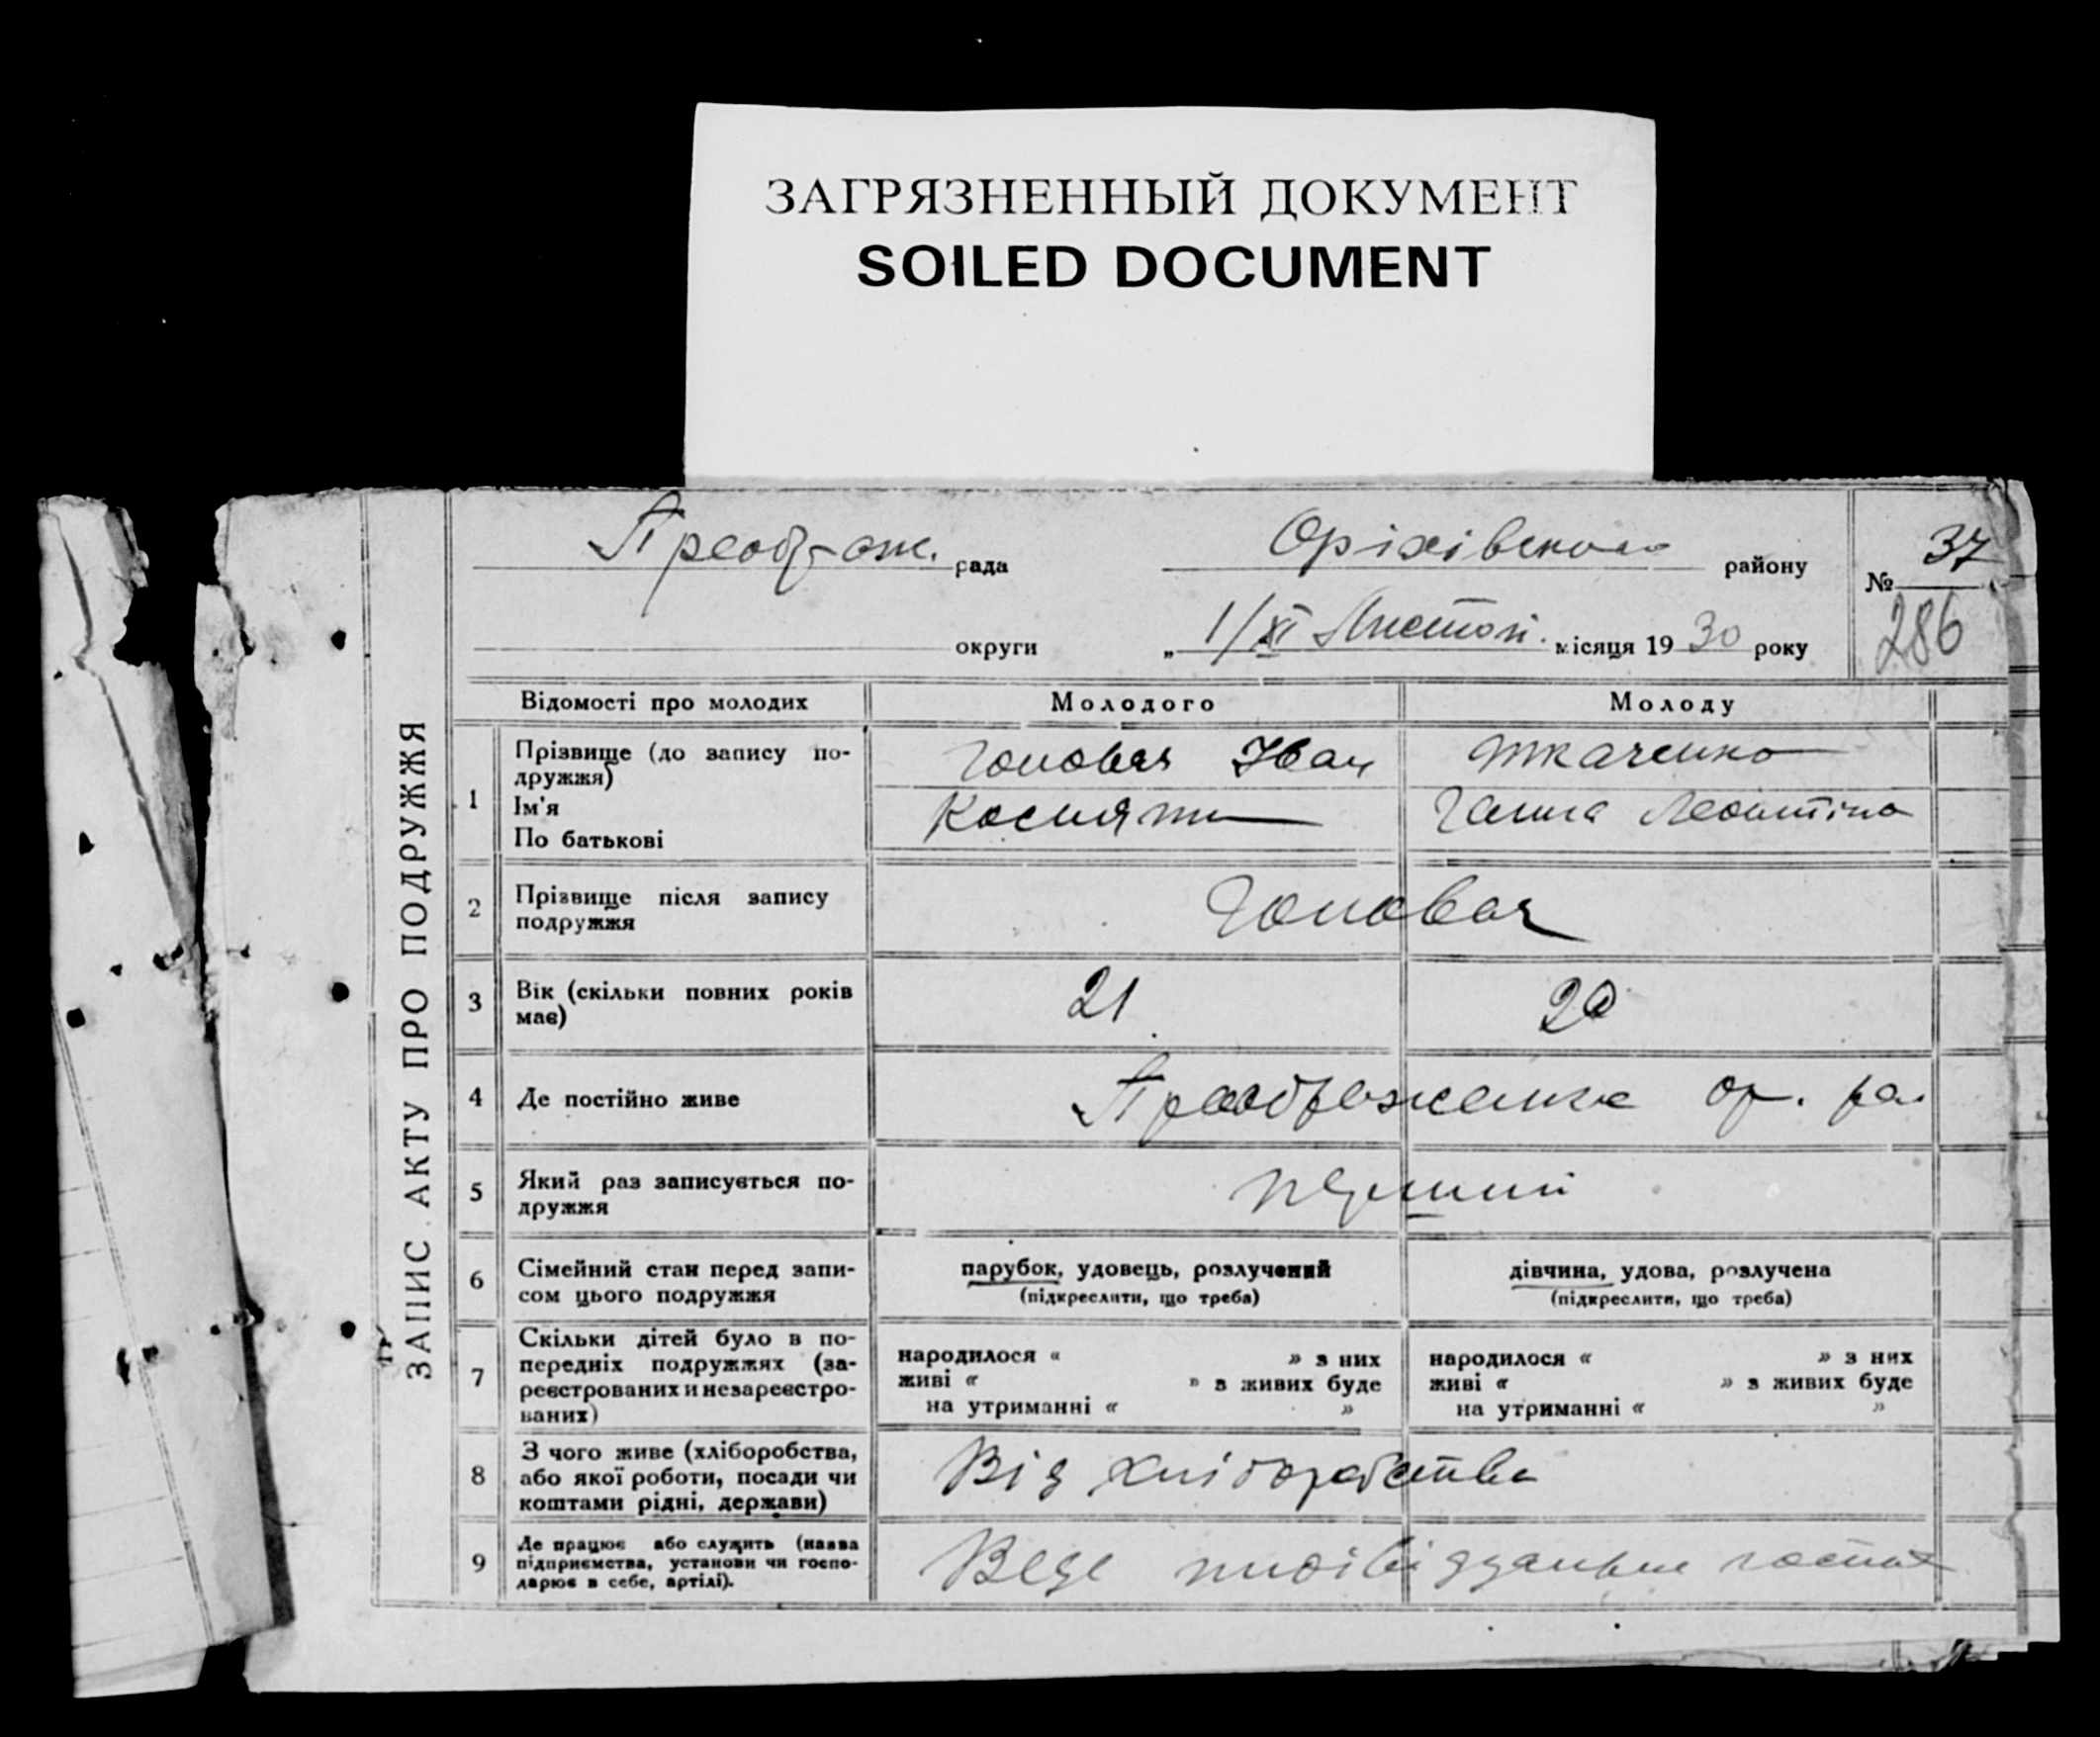 ЗАГРЯЗНЕННЫЙ ДОКУМЕНТ
SOILED DOCUMENT
ЗАПИС АКТУ ПРО ПОДРУЖЖЯ
Преображ. рада Оріхівського району № 37
округи „ 1/XI Листоп. місяця 19 30 року 286
Відомості про молодих Молодого Молоду
1 Прізвище (до запису по-
дружжя)
Ім'я
По батькові
Головач Іван Ткаченко
Ганна
2 Прізвище після запису
подружжя
Головач
3 Вік (скільки повних років
має)
21 20
4 Де постійно живе Преображенка ор. ра.
5 Який раз записується по-
дружжя
перший
6 Сімейний стан перед запи-
сом цього подружжя
парубок, удовець, розлучений
(підкреслити, що треба)
дівчина, удова, розлучена
(підкреслити, що треба)
7 Скільки дітей було в по-
передніх подружжях (за-
реєстрованих и незареєстро-
ваних)
народилося « » з них
живі « » з живих буде
на утриманні « »
народилося « » з них
живі « » з живих буде
на утриманні « »
8 З чого живе (хліборобства,
або якої роботи, посади чи
коштами рідні, держави)
Від хліборобства
9 Де працює або служить (назва
підприємства, установи чи госпо-
дарює в себе, артілі).
Веде